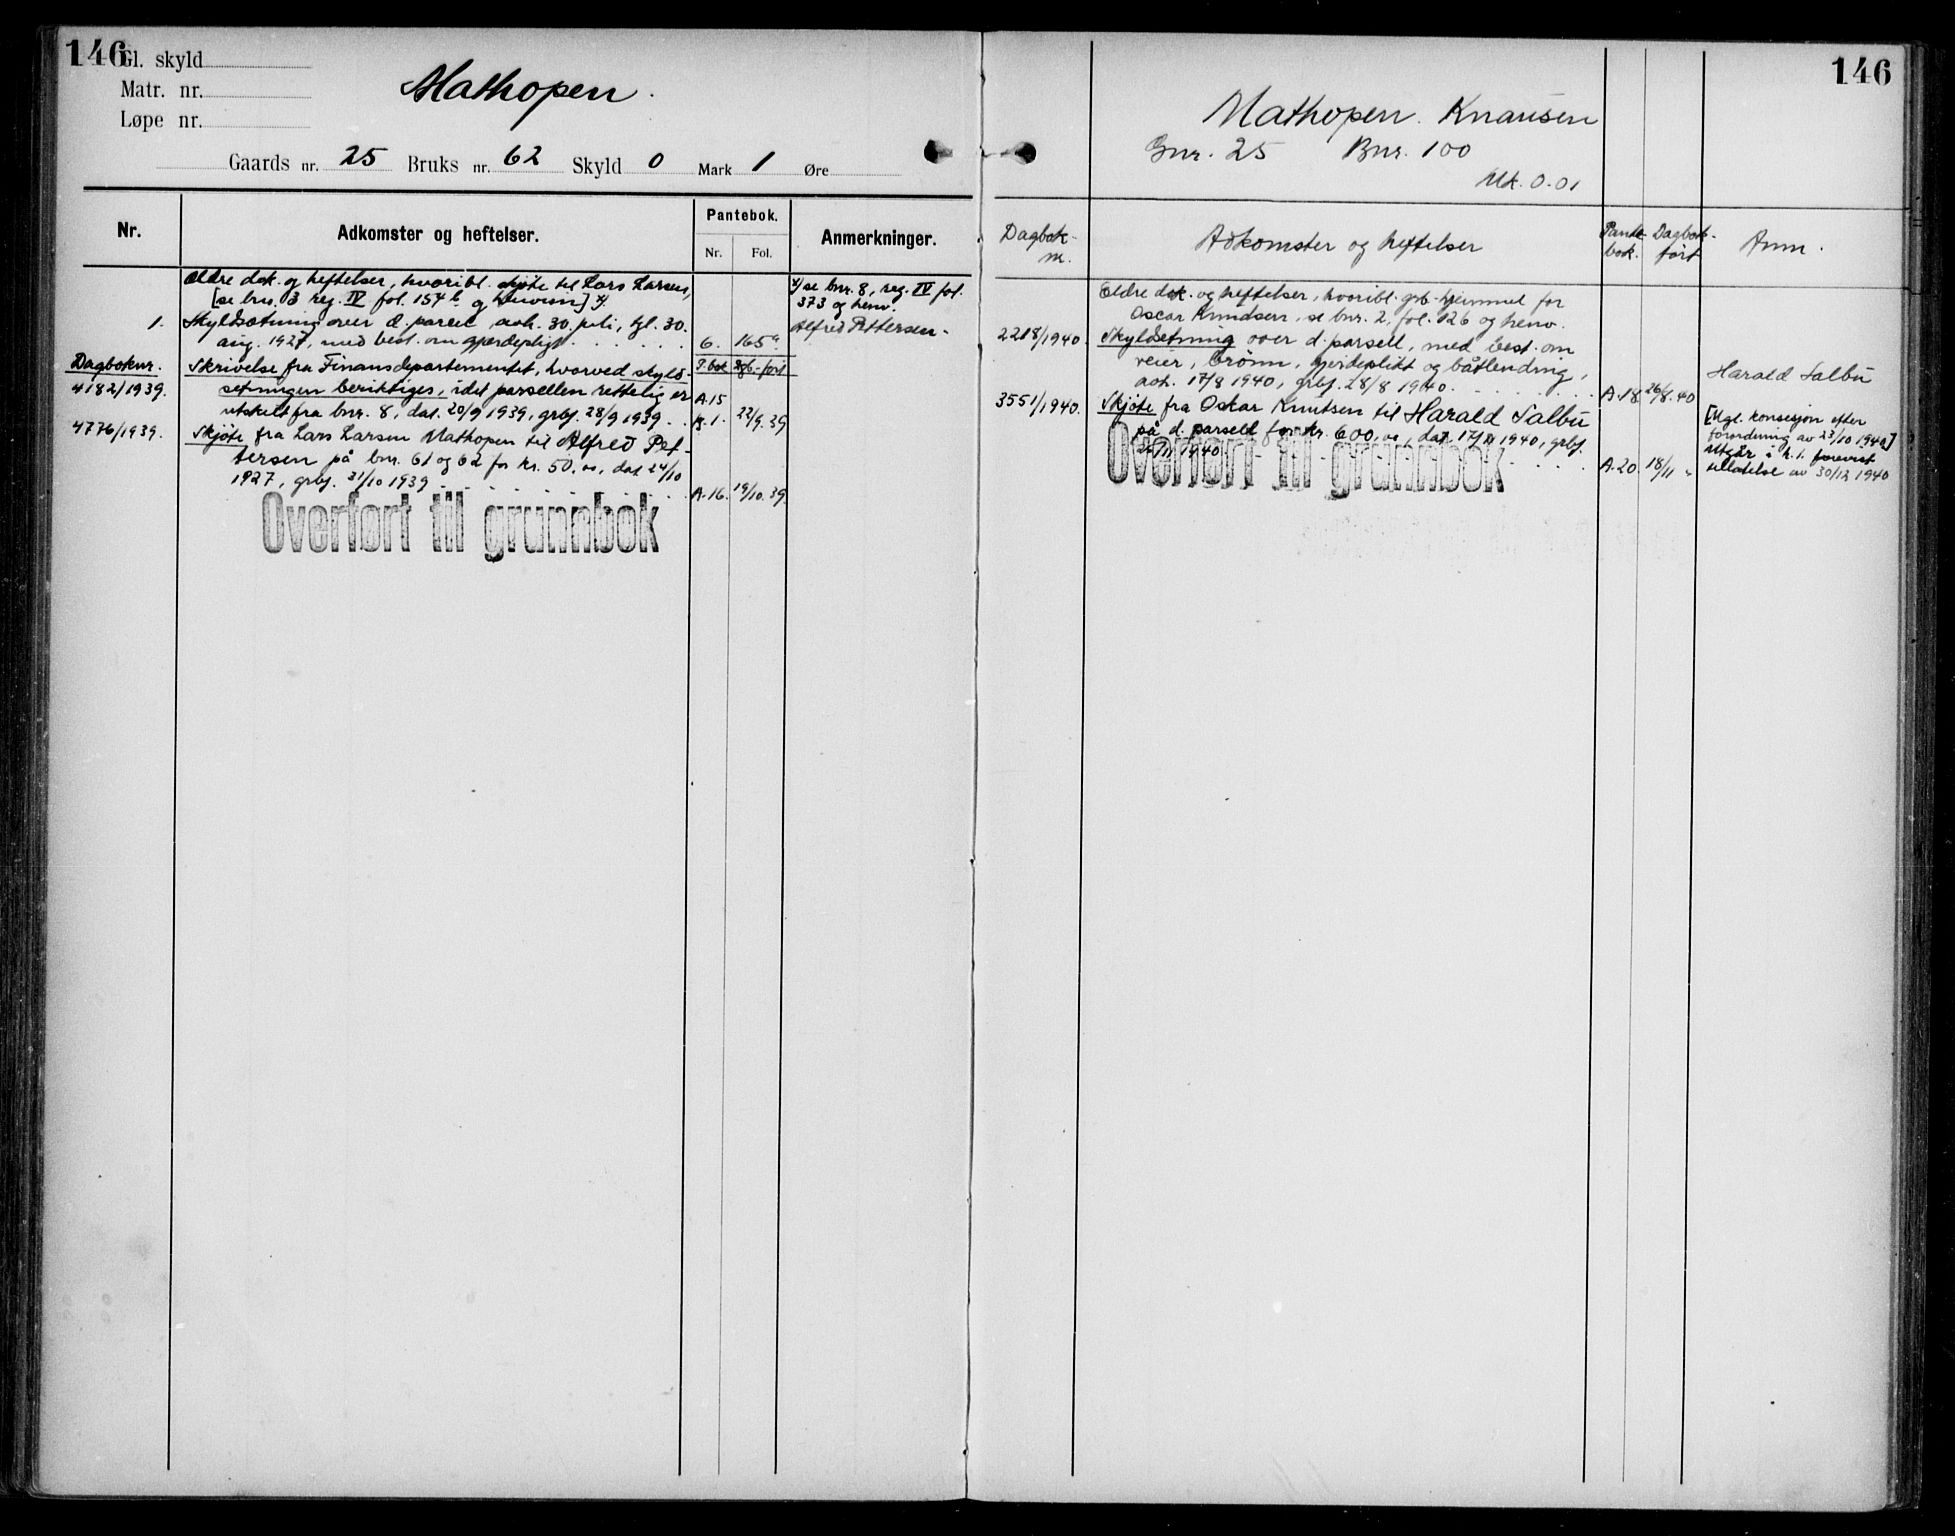 146
Gl. skyld
Matr. nr.
Løpe nr.
Mathopen.
Gaards nr. 25 Bruks nr. 62 Skyld 0 Mark 1 Øre
Nr.
Adkomster og heftelser.
Pantebok.
Nr. Fol.
Anmerkninger.
Ældre dok. og heftelser, hvoribl. skjøte til Lars Larsen,
[se bnr. 3 reg. IV fol. 154 b og henvisn] x).
x) se bnr. 8, reg. IV fol.
373 og henv.
1. Skyldsætning over d. parcel avh. 30. juli, tgl. 30.
aug. 1927, med best. om gjærdepligt 6. 165a
Alfred Pettersen.
Dagboknr.
P.bok Dgb.-ført
4182/1939. Skrivelse fra Finansdepartementet, hvorved skyld-
setningen beriktiges, idet parsellen rettelig er
utskilt fra bnr. 8, dat. 20/9 1939, grbf. 28/9 1939. A.15 R.1. 22/9.39
4776/1939. Skjøte fra Lars Larsen Mathopen til Alfred Pet-
tersen på bnr. 61 og 62 for kr. 50,00, dat 24/10
1927, grbf. 31/10 1939 A.16. 19/10.39
Overført til grunnbok
146
Mathopen. Knausen
Gnr. 25 Bnr. 100
Mk. 0.01
Dagbok-
nr.
Adkomster og heftelser
Pante-
bok.
Dagbok-
ført
Anm.
Eldre dok. og heftelser, hvoribl. grb.-hjemmel for
Oscar Knudsen, se bnr. 2, fol. 126 og henv.
2218/1940. Skyldsetning over d. parsell, med best. om
veier, brønn, gjerdeplikt og båtlending,
avh. 17/8 1940, grbf. 28/8 1940. A.18 26/8.40
Harald Salbu
3551/1940. Skjøte fra Oskar Knutsen til Harald Salbu
på d. parsell for kr. 600,00, dat. 17/11 1940, grbf.
1940 A.20 18/11 "
[Mgl. konsesjon efter
forordning av 23/10 1940]
Utgår i h.t. forevist
tillatelse av 30/12 1940
Overført til grunnbok